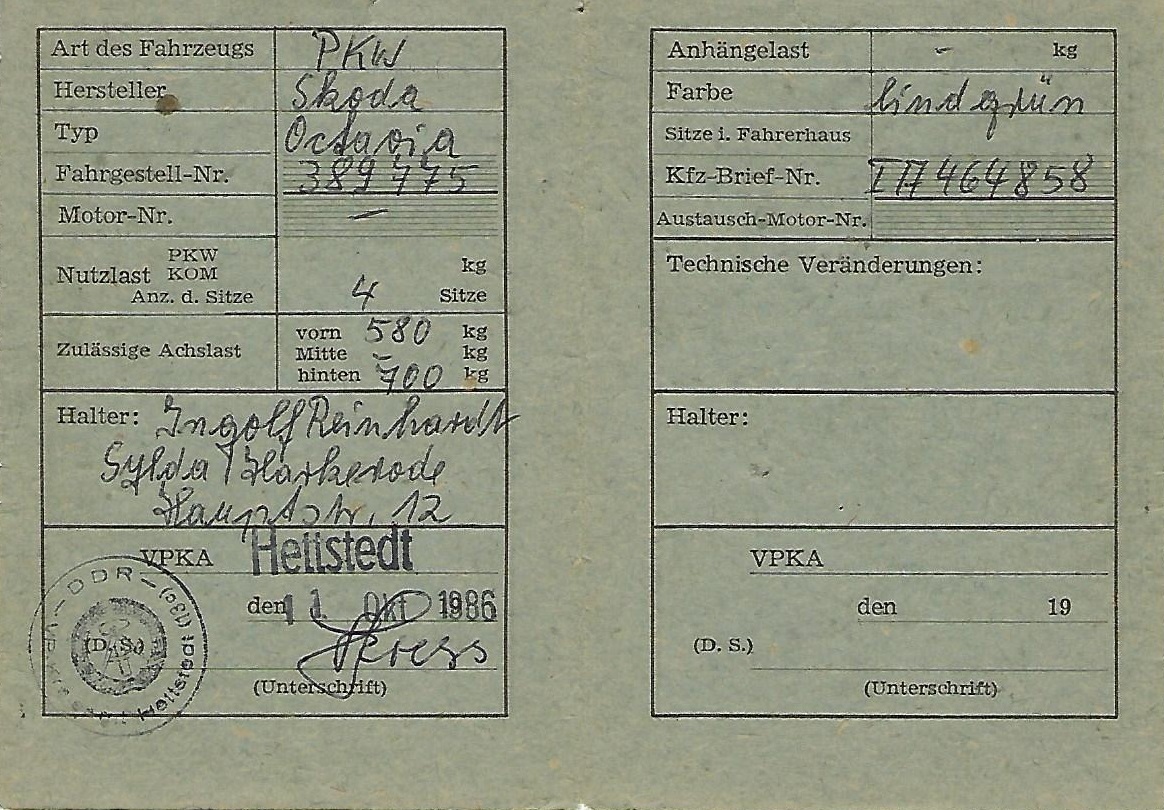 Art des Fahrzeugs PKW
Hersteller Skoda
Typ Octavia
Fahrgestell-Nr. 389775
Motor-Nr. —
Nutzlast PKW KOM kg
Anz. d. Sitze 4 Sitze
Zulässige Achslast
vorn 580 kg
Mitte – kg
hinten 700 kg
Halter: Ingolf Reinhardt
Sylda
Hauptstr. 12
VPKA Hettstedt
den 11. Okt 1986
(D. S.)
DDR
Hettstedt
(Unterschrift)
Anhängelast - kg
Farbe lindgrün
Sitze i. Fahrerhaus
Kfz-Brief-Nr. 464858
Austausch-Motor-Nr.
Technische Veränderungen:
Halter:
VPKA
den 19
(D. S.)
(Unterschrift)